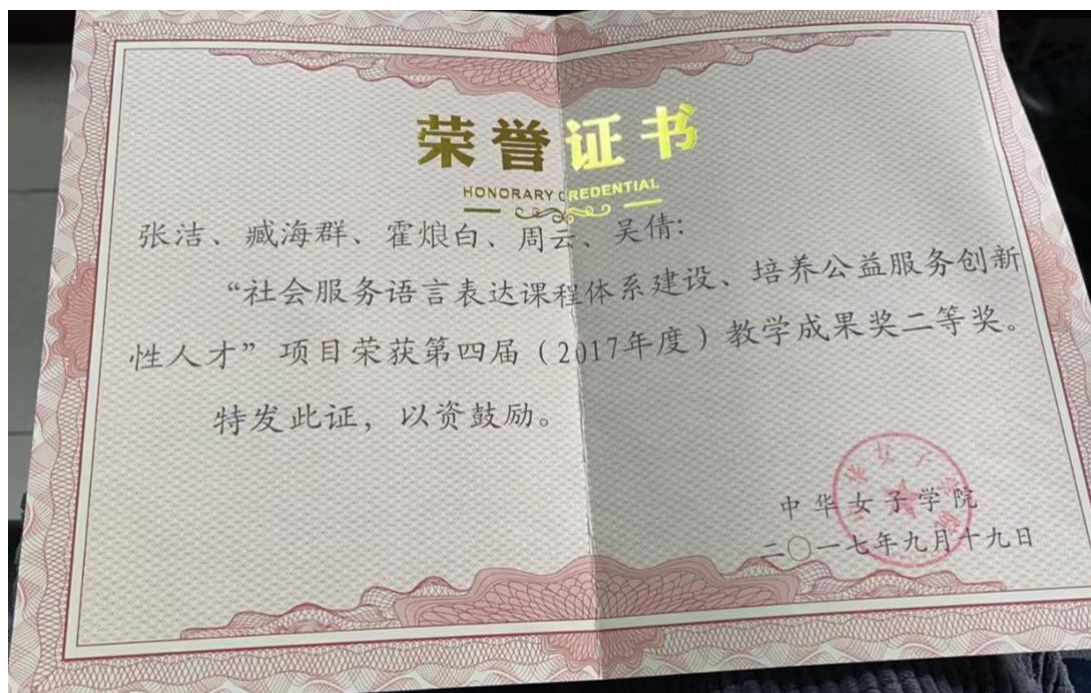 荣誉证书
HONORARY CREDENTIAL
张洁、臧海群、霍烺白、周云、吴倩:
“社会服务语言表达课程体系建设、培养公益服务创新
性人才”项目荣获第四届(2017年度)教学成果奖二等奖。
特发此证,以资鼓励。
中华女子学院
二〇一七年九月十九日